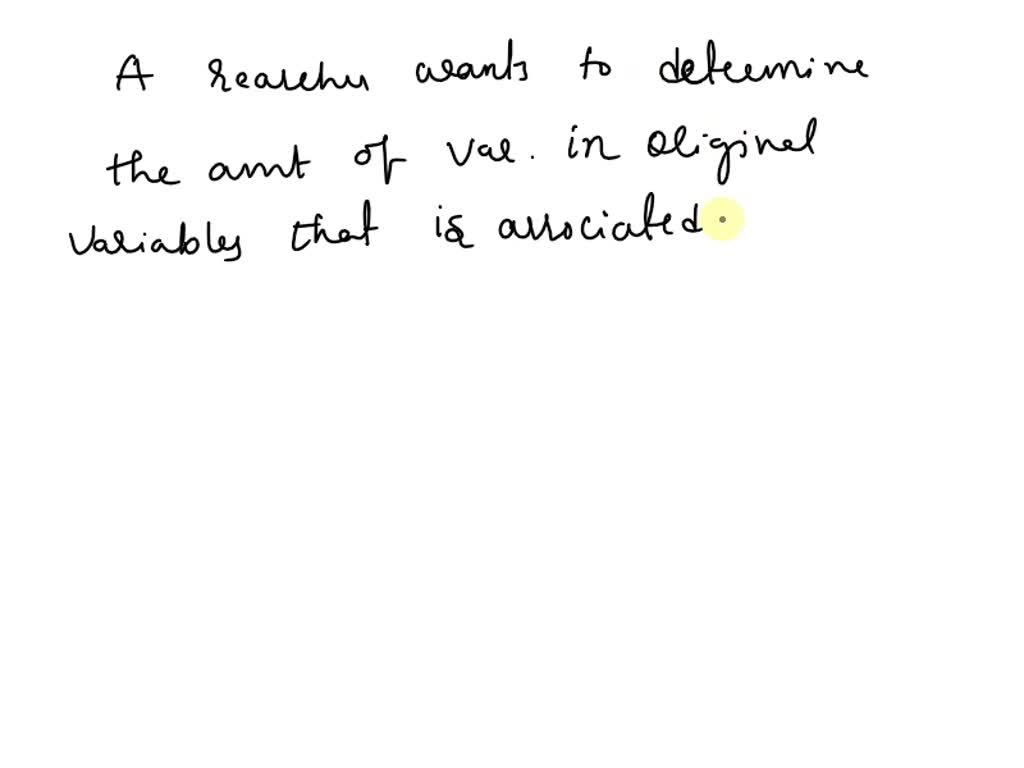 A researcher wants to determine
the amt of var. in original
variables that is associated